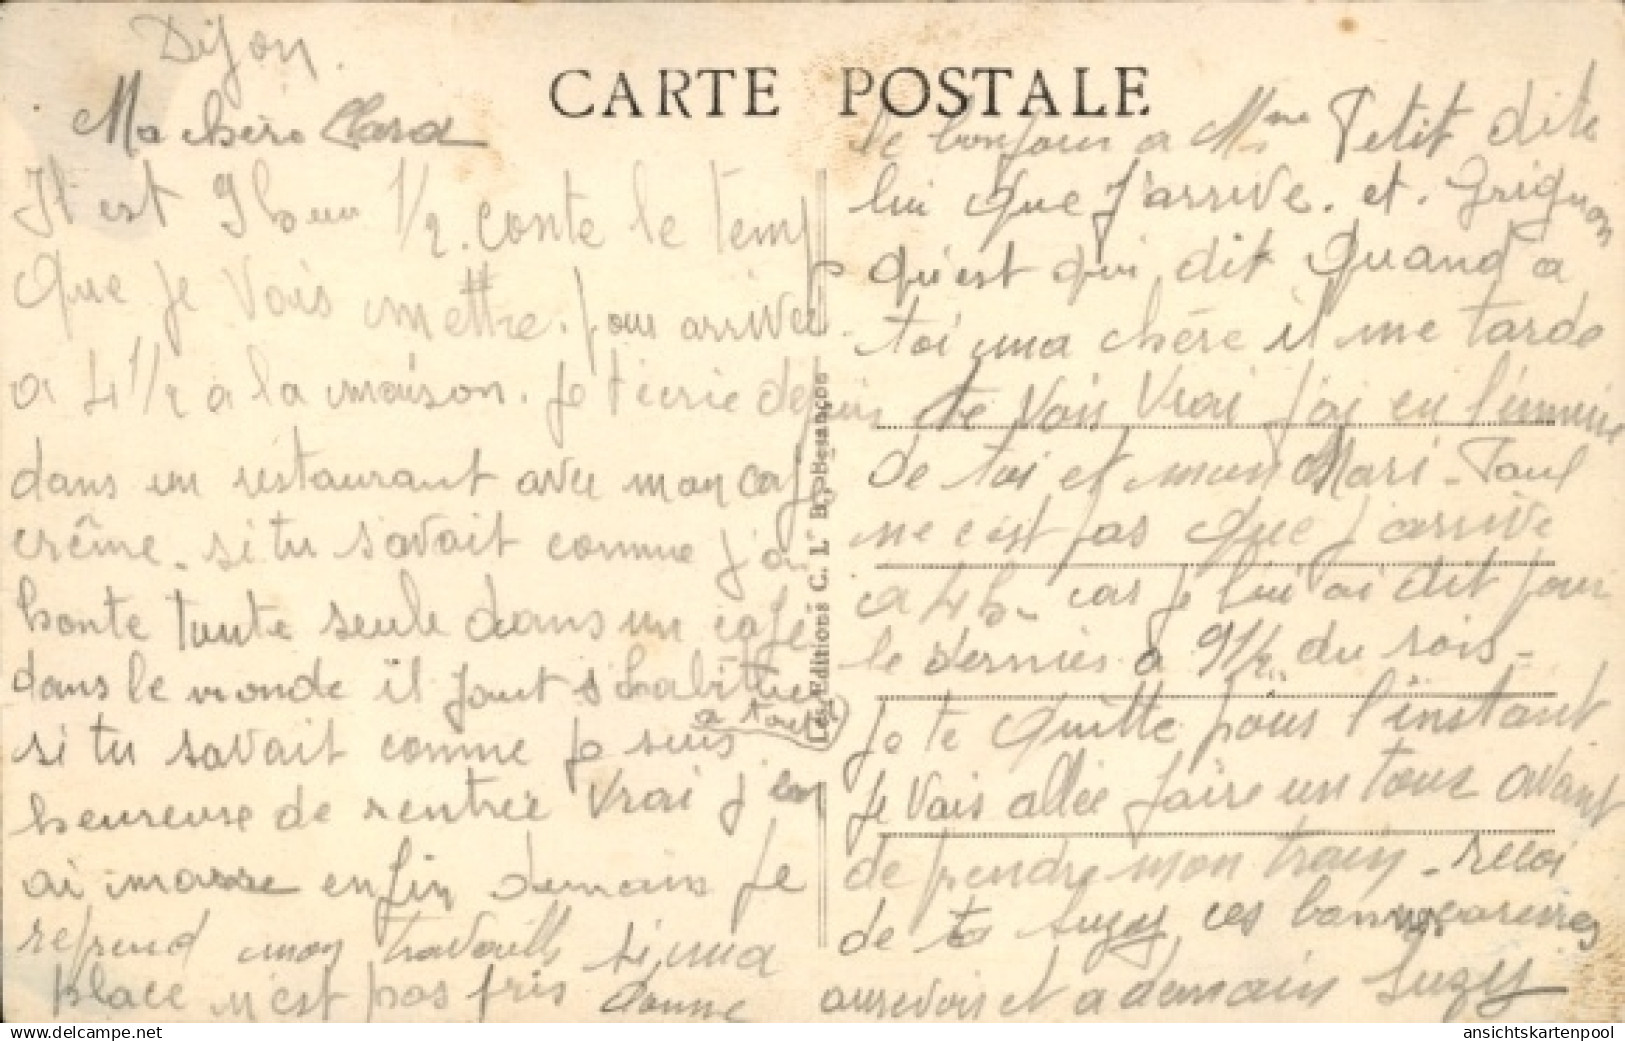 Dijon.
CARTE POSTALE
Ma chère Clara
Il est 9 heur 1/2. conte le temp
que je vais mettre. pour arriver
a 4 1/2 a la maison. je t'ecrie depuis
dans un restaurant avec mon café
crême. si tu savait comme j'ai
honte toute seule dans un café
dans le monde il faut s'habituée
a tout
si tu savait comme je suis
heureuse de rentrée vrai j'en
ai marre enfin demain je
reprend mon travaille si ma
place n'est pas pris donne
Les Editions C. L. B. Besançon
le bonjour a Mme Petit dite
lui que j'arrive. et. Grignon
qu'est qui dit quand a
toi ma chère il me tarde
de te voir vrai j'ai en l'ennuie
de toi et mon Mari. Paul
ne c'est pas que j'arrive
a 4h. car je lui ai dit pour
le dernier a 9 1/2 du soir-
Je te quitte pour l'instant
je vais allée faire un tour avant
de prendre mon train. recoi
de ta Suzy ces bonnes caresses
aurevoir et a demain Suzy
ansichtskartenpool